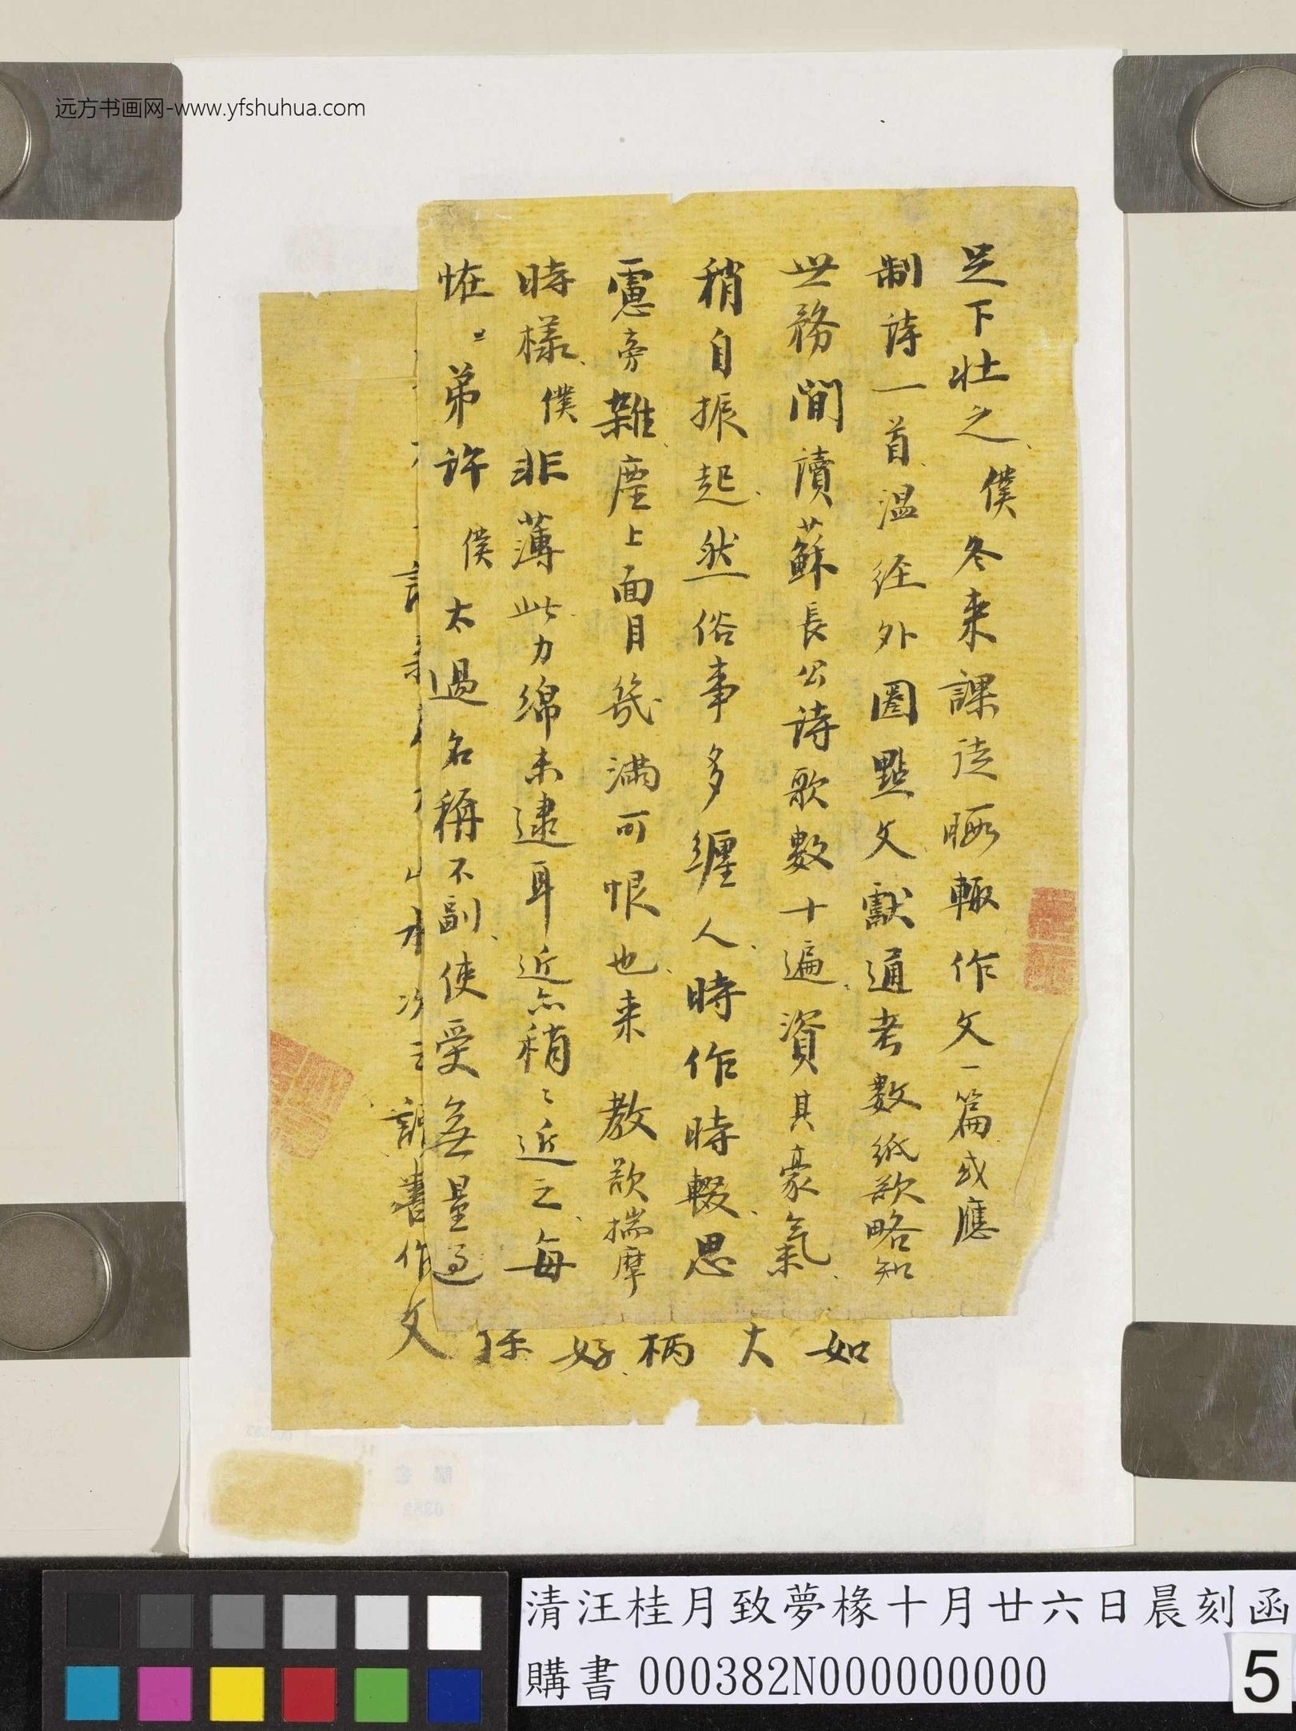 远方书画网-www.yfshuhua.com
足下壯之僕冬來課徒暇輙作文一篇或應
制詩一首温經外圈點文獻通考數紙欲略知
世務間讀蘇長公詩歌數十遍資其豪氣
稍自振起然俗事多纏人時作時輟思
慮旁雜塵上面目幾滿可恨也來教欲揣摩
時樣僕非薄此力綿未逮耳近亦稍〻近之每
恠〻弟許僕太過名稱不副使受無量過
如大柄好
書作文
清汪桂月致夢椽十月廿六日晨刻函
購書000382N000000000
5